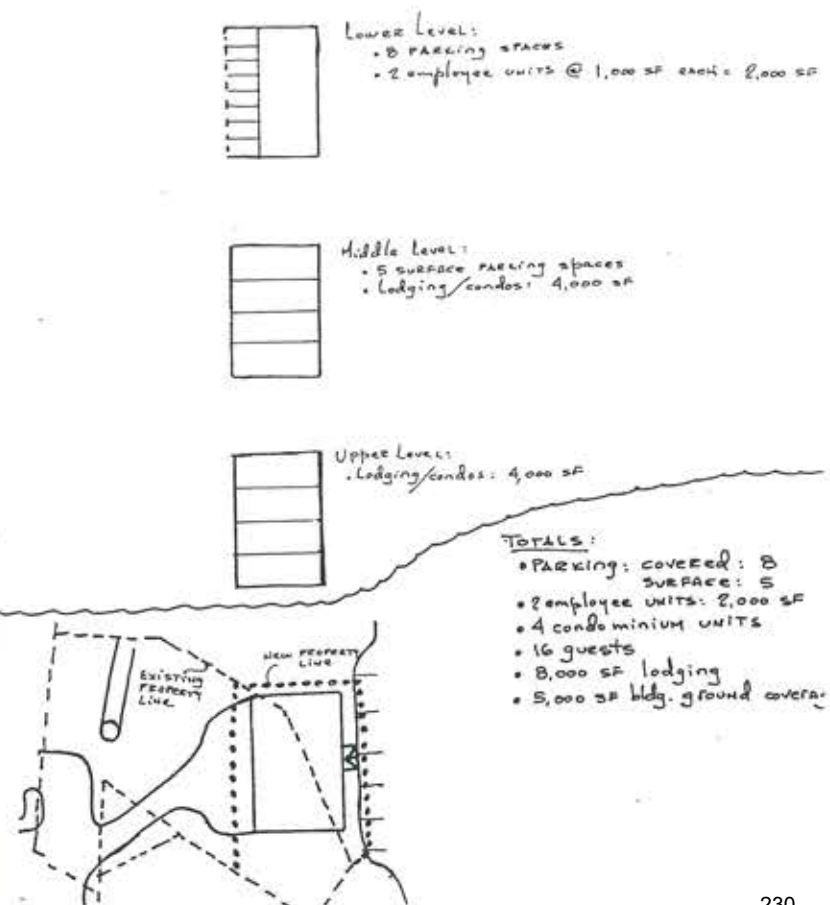 Lower Level:
• 8 parking spaces
• 2 employee units @ 1,000 SF each = 2,000 SF
Middle Level:
• 5 surface parking spaces
• Lodging/condos: 4,000 SF
Upper Level:
• Lodging/condos: 4,000 SF
TOTALS:
• Parking: covered: 8
surface: 5
• 2 employee units: 2,000 SF
• 4 condominium units
• 16 guests
• 8,000 SF lodging
• 5,000 SF bldg. ground covera
EXISTING
PROPERTY
LINE
NEW PROPERTY
LINE
230